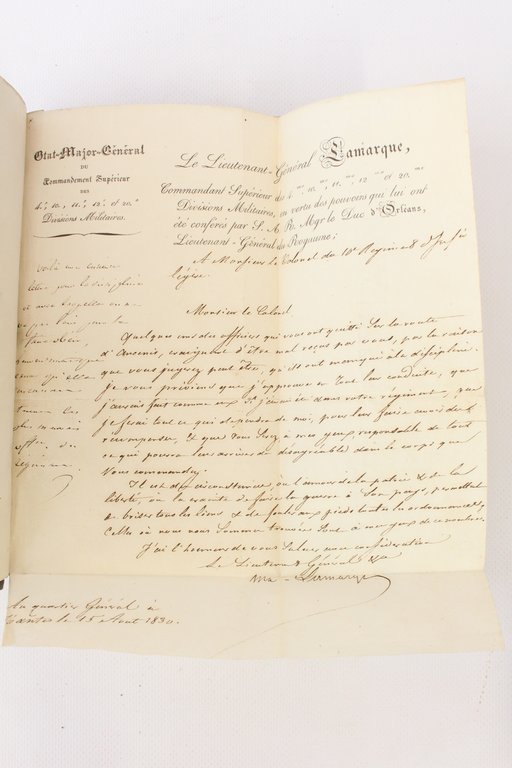 Etat-Major-Général
DU
Commandement Supérieur
DES
4.e 10, 11.e 12.e et 20.e
Divisions Militaires.
Le Lieutenant-Général Lamarque,
Commandant Supérieur des 4.me, 10.me, 11.me, 12.me et 20.me
Divisions Militaires, en vertu des pouvoirs qui lui ont
été conférés par S. A. R. Mgr. le Duc d'Orléans,
Lieutenant-Général du Royaume;
A Monsieur le Colonel du 10e Régiment d'Infie
légère.
Monsieur le Colonel
Quelques uns des officiers qui vous ont quitté sur la route
d'Ancenis, craignent d'être mal reçus par vous, par la raison
que vous jugerez peut être, qu'ils ont manqué à la discipline.
Je vous préviens que j'approuve en tout leur conduite, que
j'aurais fait comme eux si j'eusse été dans votre régiment, que
je ferai tout ce qui dépendra de moi, pour leur faire avoir des
récompenses, & que vous serez à mes yeux, responsable de tout
ce qui pourra leur arriver de désagréable dans le corps que
vous commandez.
Il est des circonstances où l'amour de la patrie & de la
liberté, où la crainte de faire la guerre à son pays, permettent
de briser tous les liens & de fouler aux pieds toutes les ordonnances,
celles où nous nous sommes trouvés sont à mes yeux de ce nombre.
J'ai l'honneur de vous saluer avec considération
Le Lieutenant Général
Max. Lamarque
Voilà une
lettre pour la discipline
Au quartier Général à
Nantes le 15 Aout 1830.